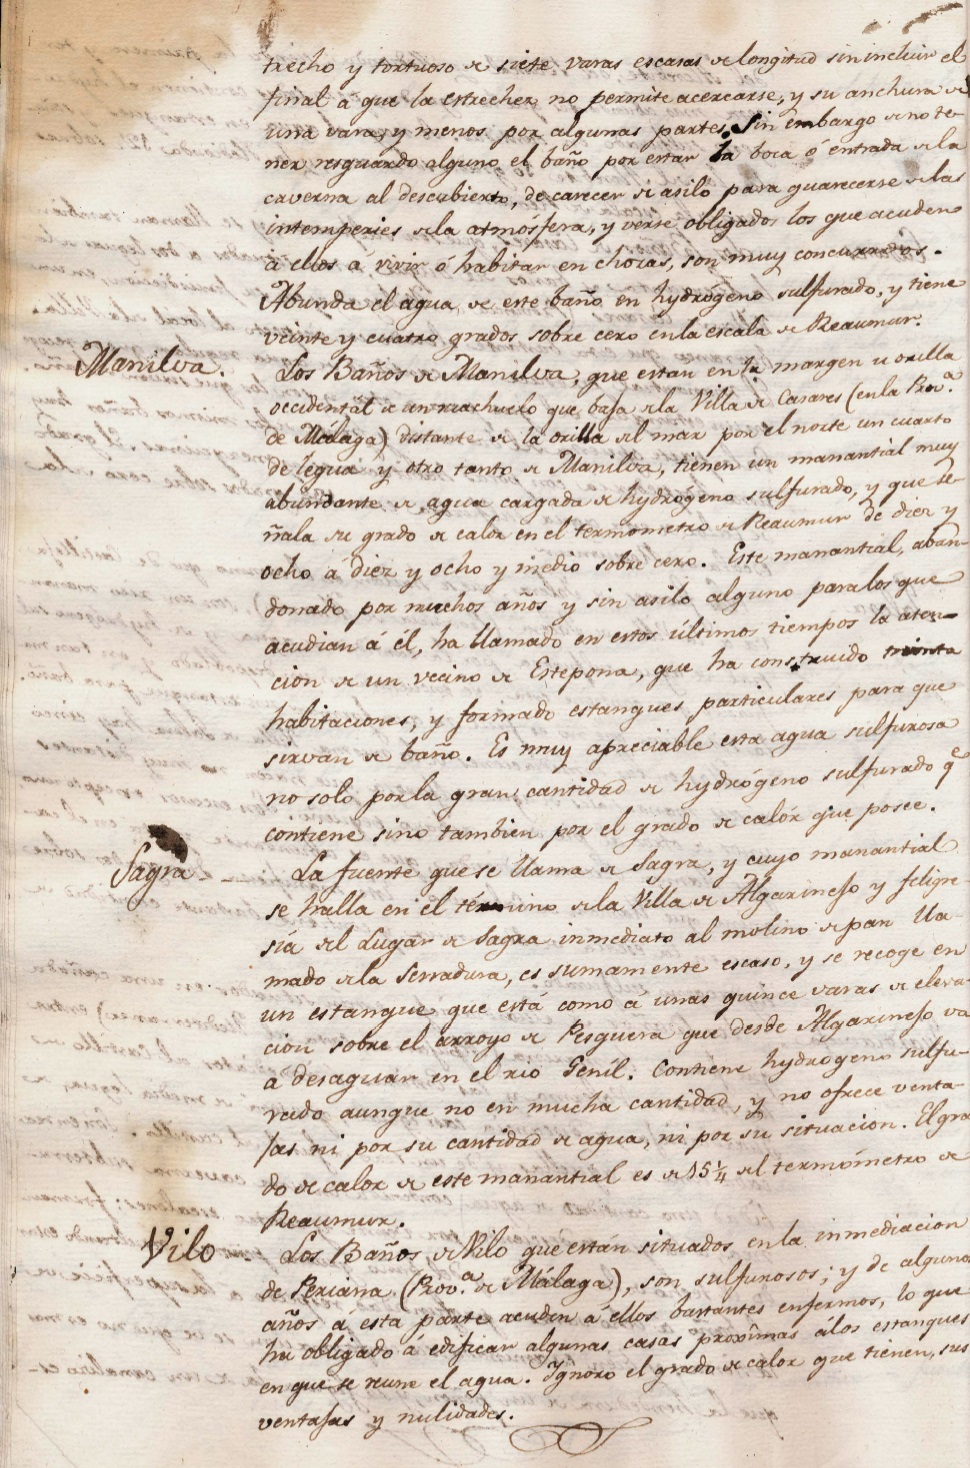 trecho y tortuoso de siete varas escasas de longitud sin incluir el
final á que la estrechez no permite acercarse, y su anchura de
una vara, y menos por algunas partes. Sin embargo de no te-
ner resguardo alguno el baño por estar la boca ó entrada de la
caverna al descubierto, de carecer de asilo para guarecerse de las
intemperies de la atmósfera, y verse obligados los que acuden
á ellos á vivir ó habitar en chozas, son muy concurridos.
Abunda el agua de este baño en hydrógeno sulfurado, y tiene
veinte y cuatro grados sobre cero en la escala de Reaumur.
Manilva.
Los Baños de Manilva, que estan en la margen u orilla
occidental de un riachuelo que baja de la Villa de Casares (en la Prov.ª
de Málaga) distante de la orilla del mar por el norte un cuarto
de legua y otro tanto de Manilva, tienen un manantial muy
abundante de agua cargada de hydrógeno sulfurado, y que se-
ñala su grado de calor en el termometro de Reaumur de diez y
ocho á diez y ocho y medio sobre cero. Este manantial, aban-
donado por muchos años y sin asilo alguno para los que
acudian á él, ha llamado en estos últimos tiempos la aten-
cion de un vecino de Estepona, que ha construido treinta
habitaciones, y formado estanques particulares para que
sirvan de baño. Es muy apreciable esta agua sulfurosa
no solo por la gran cantidad de hydrógeno sulfurado qe
contiene sino tambien por el grado de calór que posee.
Sagra
La fuente que se llama de Sagra, y cuyo manantial
se halla en el término de la Villa de Algarinejo y feligre-
sía del Lugar de Sagra inmediato al molino de pan lla-
mado de la Serradura, es sumamente escaso, y se recoge en
un estanque que está como á unas quince varas de eleva-
cion sobre el arroyo de Pesquera que desde Algarinejo va
á desaguar en el rio Genil. Contiene hydrogeno sulfu-
rado aunque no en mucha cantidad, y no ofrece venta-
jas ni por su cantidad de agua, ni por su situacion. El gra
do de calor de este manantial es de 15 1/4 del termómetro de
Reaumur.
Vilo
Los Baños de Vilo que están situados en la inmediacion
de Periana (Prov.ª de Málaga), son sulfurosos; y de algunos
años á esta parte acuden á ellos bastantes enfermos, lo que
ha obligado á edificar algunas casas proxîmas á los estanques
en que se reune el agua. Ignoro el grado de calor que tienen, sus
ventajas y nulidades.